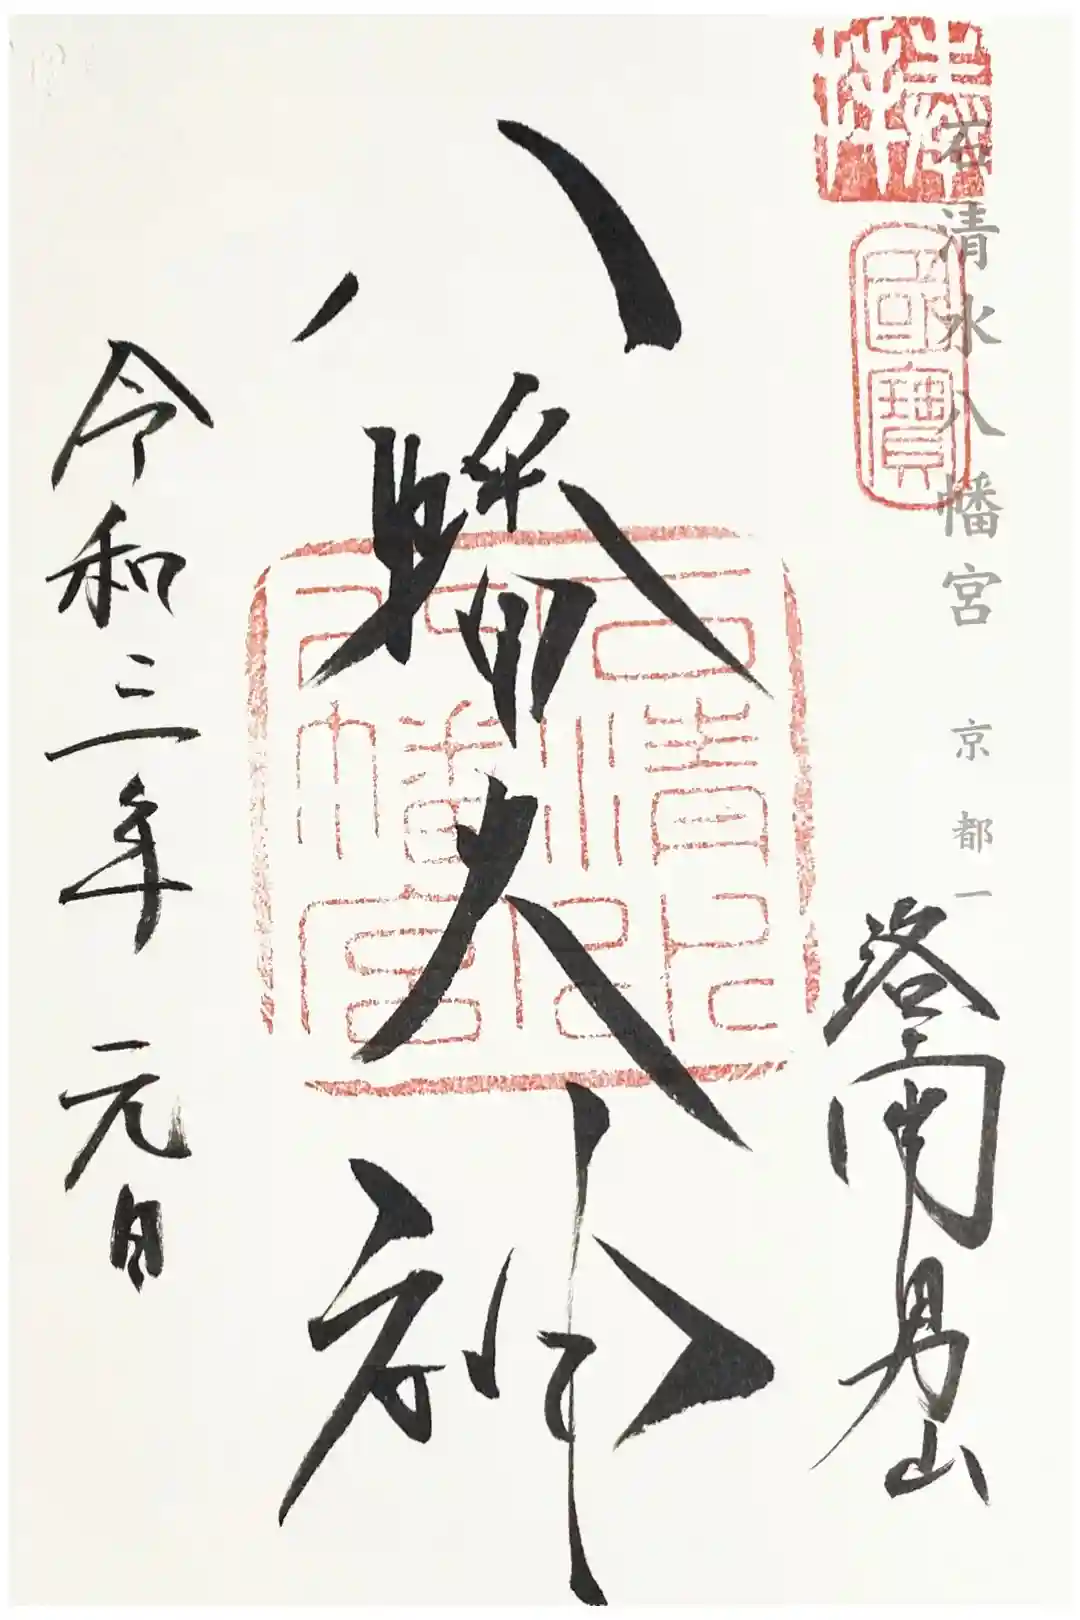 奉拝
國寶
石清水八幡宮 京都一
洛南男山
八幡大神
石清水八幡宮
令和三年 元日